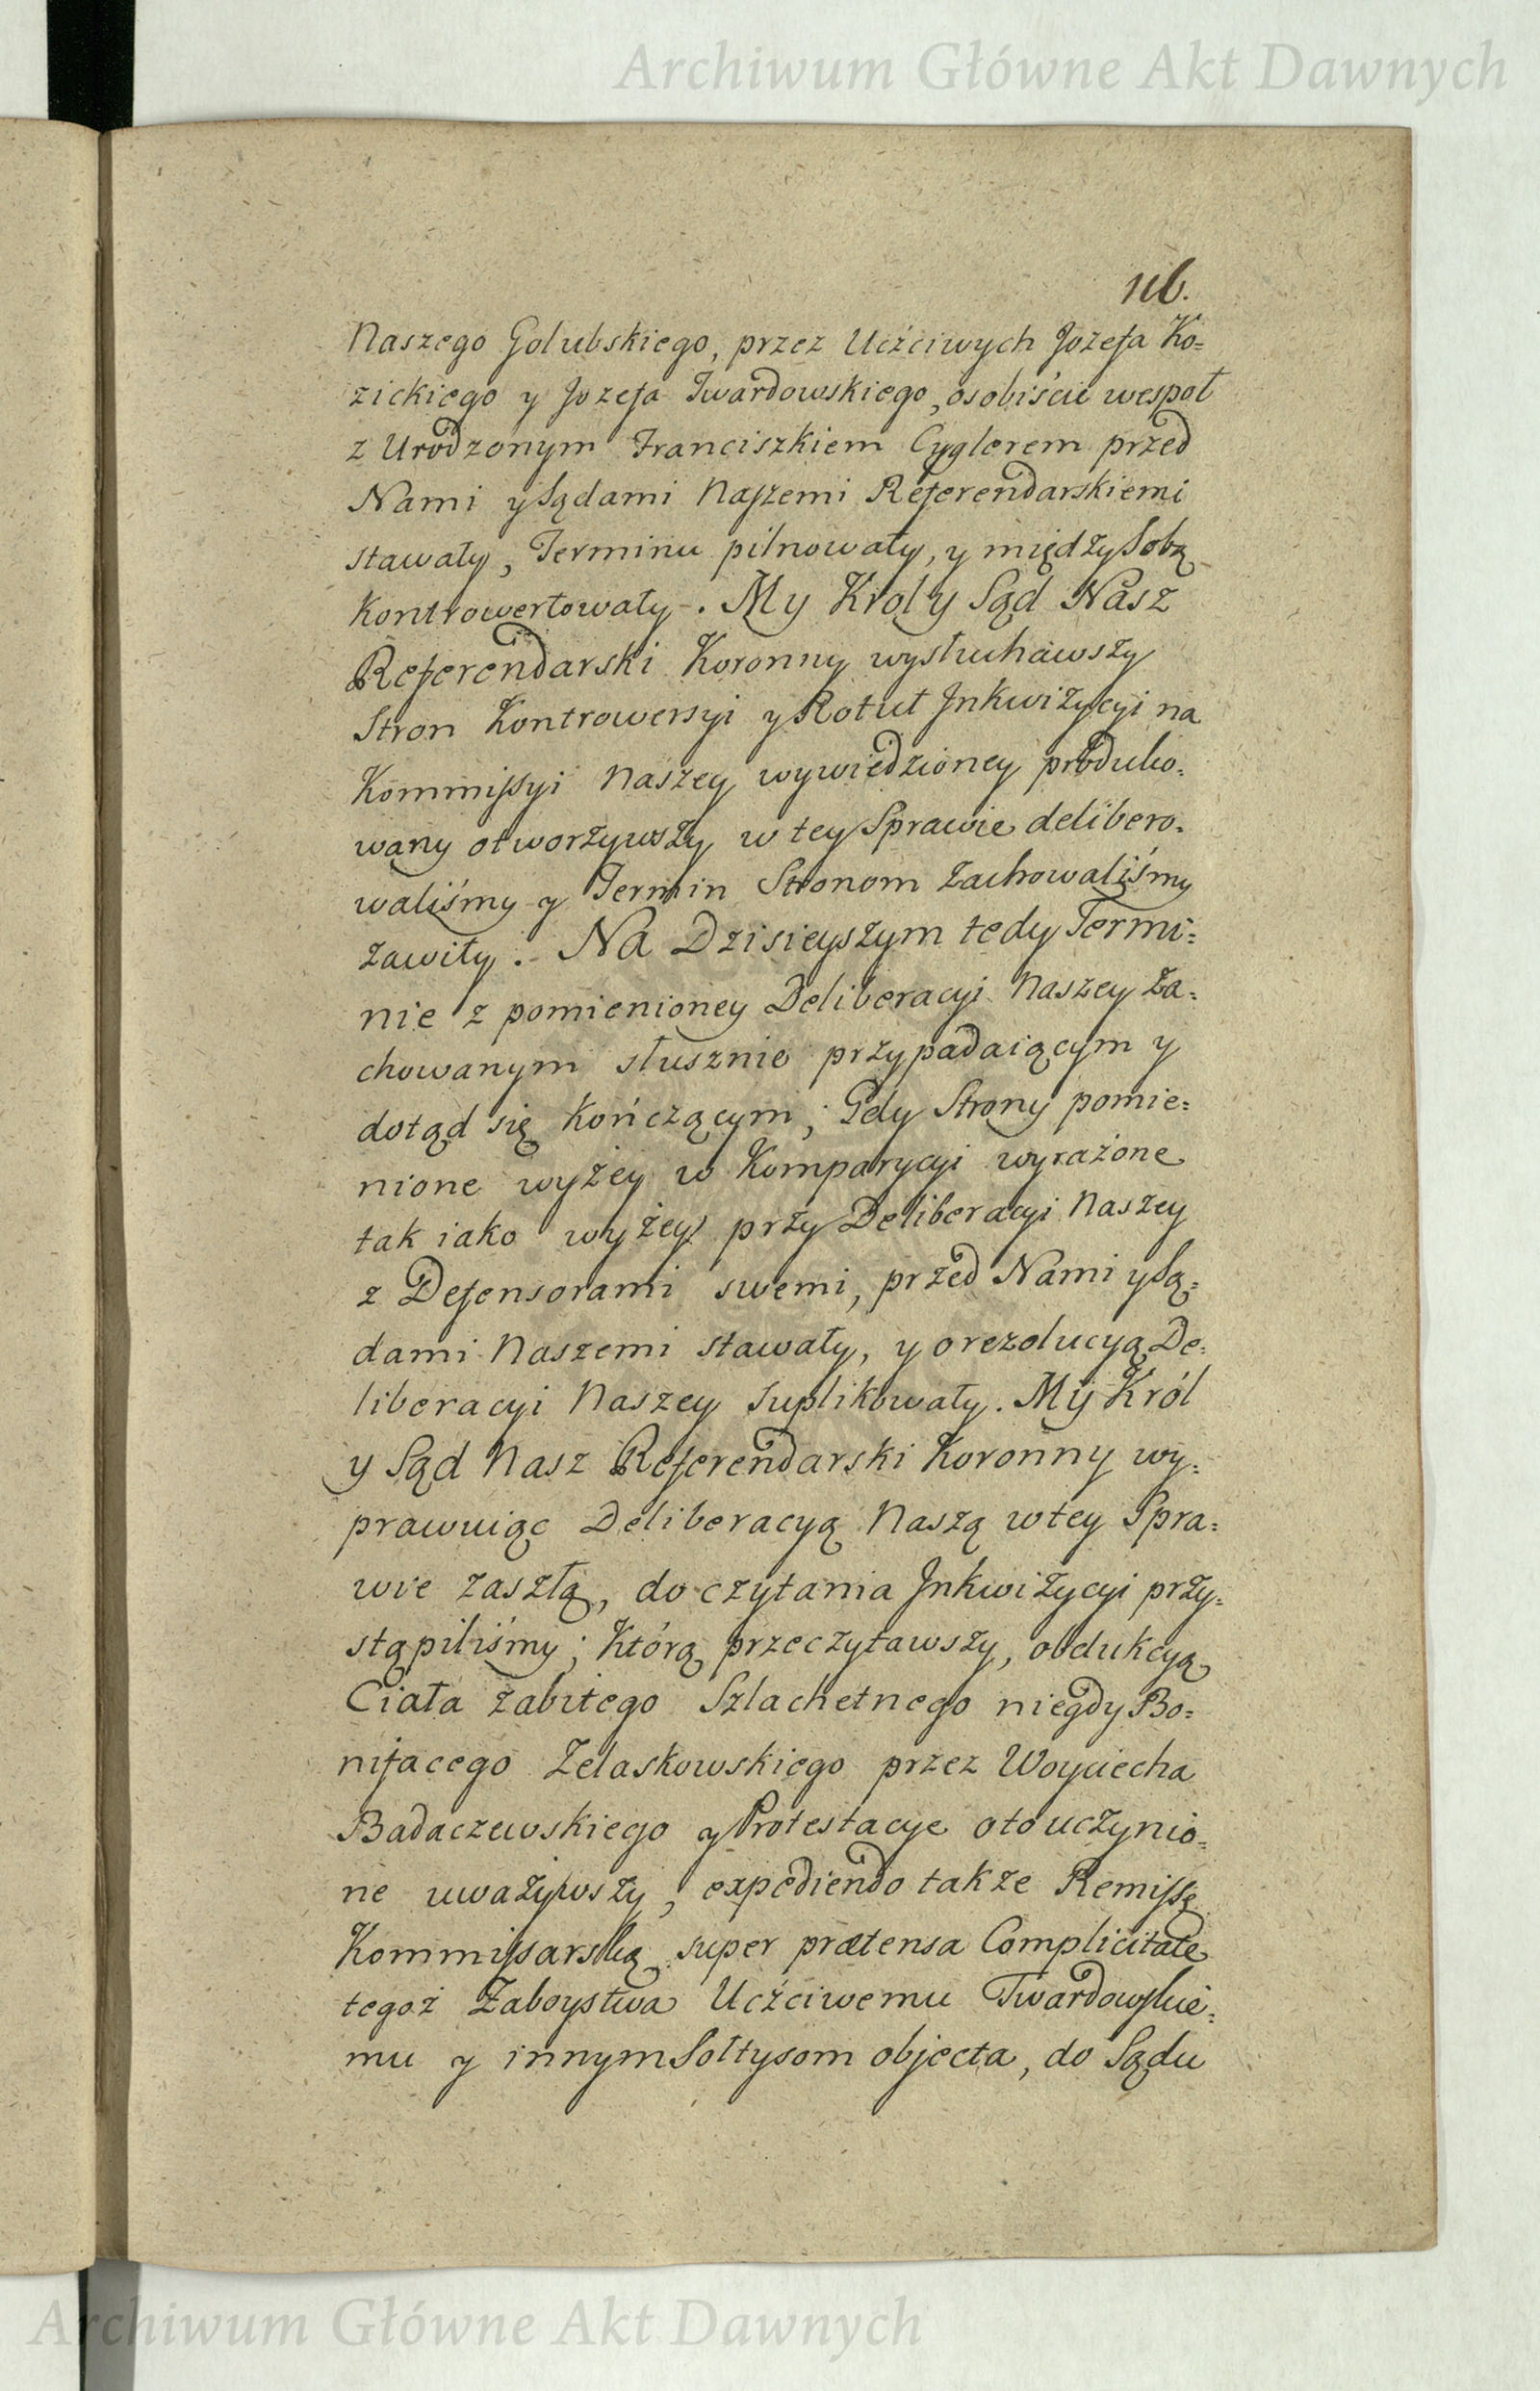 Archiwum Główne Akt Dawnych
116.
Naszego Golubskiego, przez Ućźciwych Jozefa Ko=
zickiego y Jozefa Twardowskiego, osobiście wespoł
z Urodzonym Franciszkiem Cyglerem przed
Nami y Sądami Naszemi Referendarskiemi
stawały, Terminu pilnowały, y między Sobą
kontrowertowały. My Krol y Sąd Nasz
Referendarski Koronny wysłuchawszy
Stron Kontrowersyi y Rotuł Jnkwiżycyi na
Kommissyi Naszey wywiedzioney produko=
wany otworżywszy w tey Sprawie delibero=
waliśmy y Termin Stronom Zachowaliśmy
Zawity. Na Dzisieyszym tedy Termi=
nie z pomienioney Deliberacyi Naszey Za=
chowanym słusznie przypadaiącym y
dotąd się kończącym; Gdy Strony pomie=
nione wyżey w Komparycyi wyrażone
tak iako wyżey przy Deliberacyi Naszey
z Defensorami swemi, przed Nami y Są=
dami Naszemi stawały, y o rezolucyą De=
liberacyi Naszey suplikowały. My Król
y Sąd Nasz Referendarski Koronny wy=
prawuiąc Deliberacyą Naszą w tey Spra=
wie zaszłą, do czytania Jnkwiżycyi przy=
stąpiliśmy; Którą przeczytawszy, obdukcyą
Ciała zabitego Szlachetnego niegdy Bo=
nifacego Zelaskowskiego przez Woyciecha
Badaczewskiego y Protestacye o to uczynio=
ne uważywszy, expediendo także Remissę
Kommissarską super prætensa Complicitate
tegoż Zaboystwa Ućźciwemu Twardowskie=
mu y innym Sołtysom objecta, do Sądu
Archiwum Główne Akt Dawnych